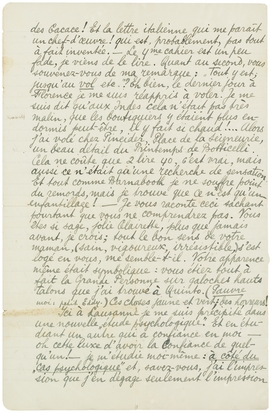 des Cacace! Et la lettre italienne qui me paraît
un chef d'œuvre! qui est, probablement, pas tout
à fait inventée. — Le 4me cahier est un peu
fade, je viens de le lire. Quant au second, vous
souvenez-vous de ma remarque: "Tout y est,
jusqu'au vol etc. Eh bien, ce dernier jour à
Florence je me suis réappris à voler. Je me
suis dit qu'aux Indes cela n'était pas très
malin, que les boutiquiers y étaient plus en-
dormis peut-être, il y fait si chaud... Alors
j'ai volé chez Pineider, Place de la Seigneurie,
un beau détail du Printemps de Botticelli.
Cela ne coûte que 2 lire 40, c'est vrai, mais
aussi ce n'était qu'une recherche de sensation.
Et tout comme Barnabooth je ne souffre point
du remords, mais je trouve que ce n'est qu'un
enfantillage! — Je vous raconte ceci sachant
pourtant que vous ne comprendrez pas. Vous
êtes si sage, jolie Clairette, plus que jamais
avant, je crois; tout le bon sens de votre
maman (sain, vigoureux, irrésistible) s'est
logé en vous, me semble-t-il. Votre apparence
même était symbolique: vous étiez tout à
fait la Grande Personne sur
talons que j'ai trouvé à
moi, ) Ces choses jaune et vert; des horreurs!
Ici à Lausanne je me suis précipité dans
une nouvelle étude psychologique! Et en étu-
diant un autre qui a confiance en moi —
oh cette luxe d'avoir la confiance de quel-
qu'un! — j'étudie moi-même: à côté du
"cas psychologique" et, savez-vous, j'ai l'impres-
sion que j'en dégage seulement l'impression